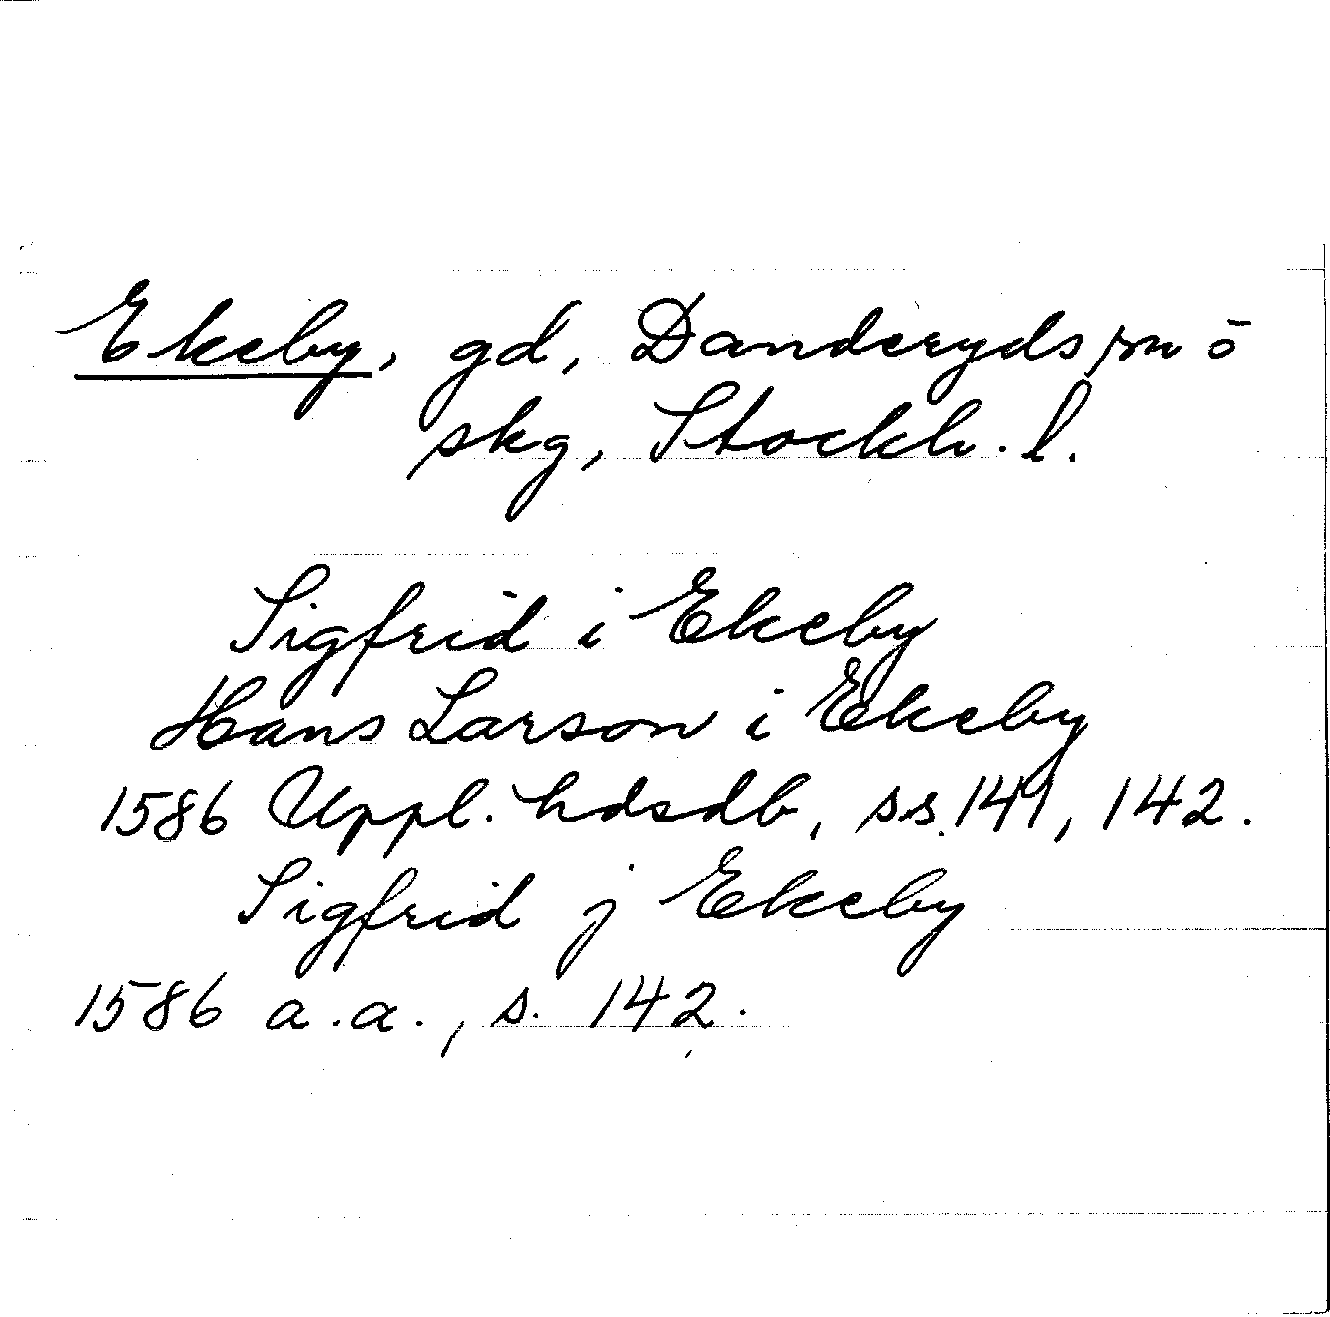 Ekeby, gd, Danderyds sn o
skg, Stockh. l.
Sigfrid i Ekeby
Hans Larson i Ekeby
1586 Uppl. hdsdb, ss. 141, 142.
Sigfrid j Ekeby
1586 a.a., s. 142.